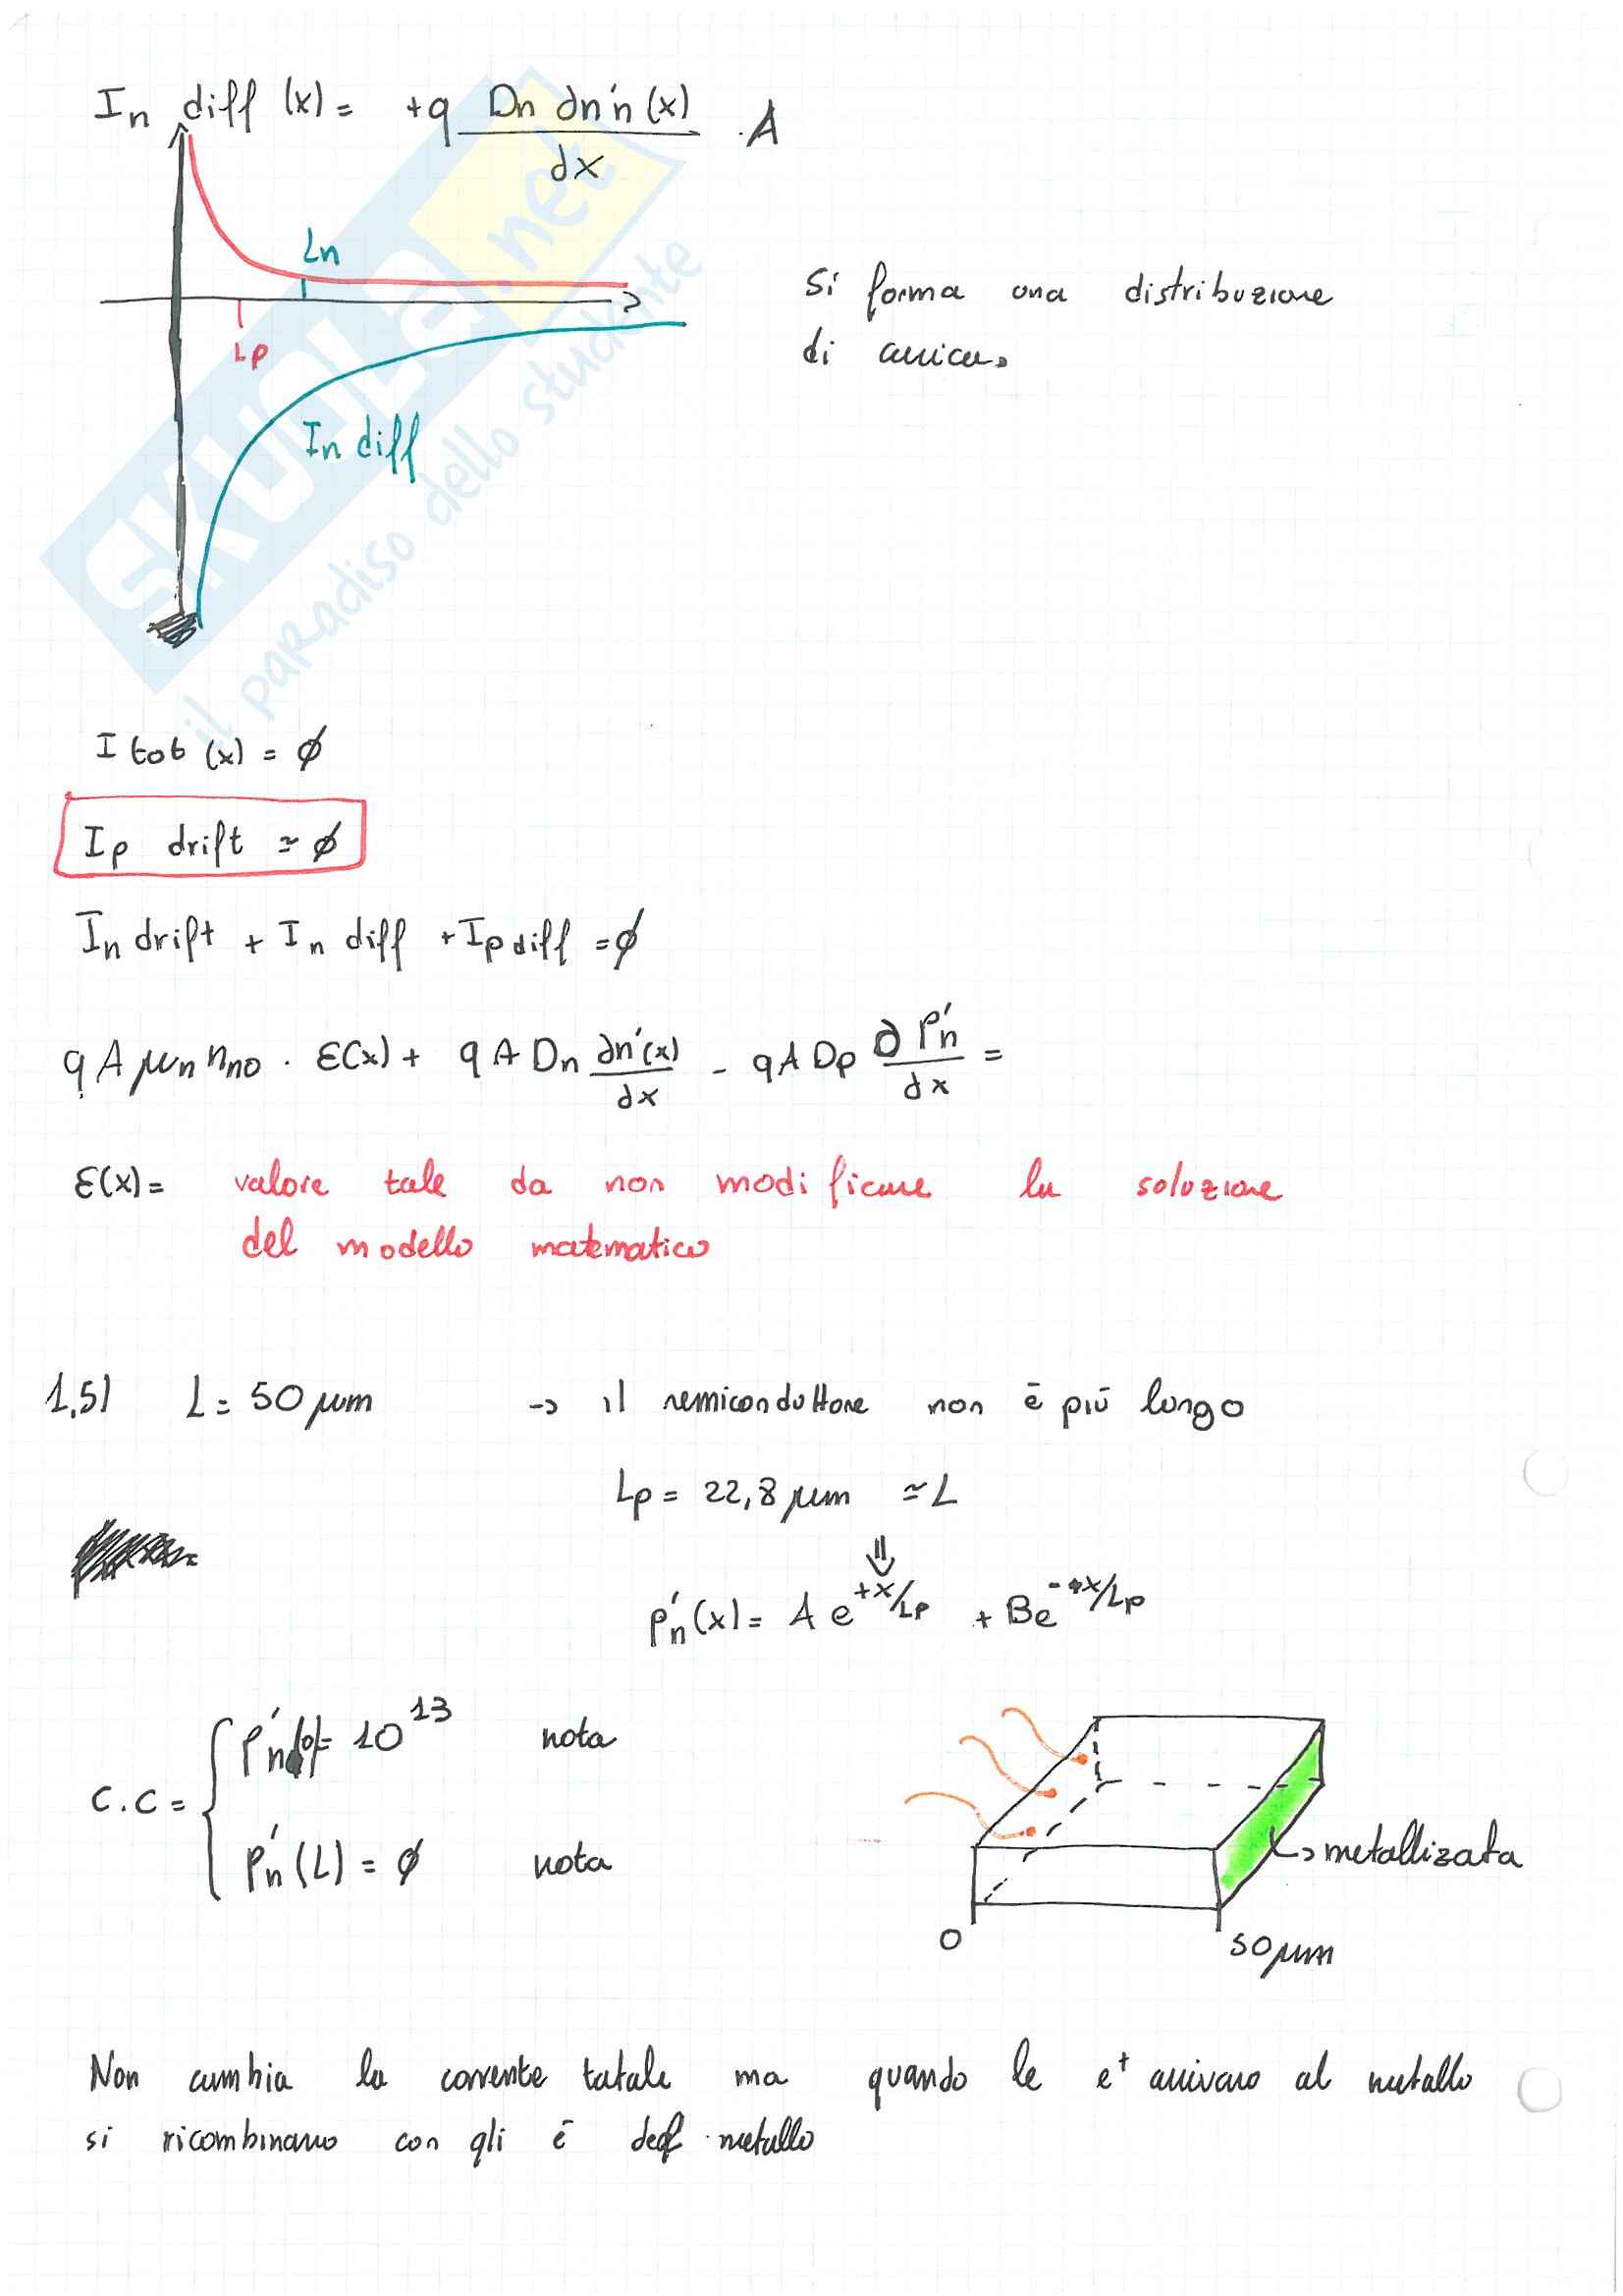 In diff (x) = +q Dn ∂n'n(x) / dx · A
Ln
Lp
In diff
Si forma una distribuzione
di carica.
SKUOLA.net
il paradiso dello studente
I tot (x) = ∅
Ip drift ≃ ∅
In drift + In diff + Ip diff = ∅
q A μn nno · Ɛ(x) + q A Dn ∂n'(x) / dx - q A Dp ∂ P'n / dx =
Ɛ(x) = valore tale da non modificare la soluzione
del modello matematico
1.5) L = 50 μm -> il semiconduttore non è più lungo
Lp = 22,8 μm ≃ L
⇓
p'n (x) = A e^+x/Lp + B e^-x/Lp
C.C = { P'n(0) = 10^13 nota
P'n (L) = ∅ nota
-> metallizzata
0
50 μm
Non cambia la corrente totale ma quando le e+ arrivano al metallo
si ricombinano con gli e- del metallo